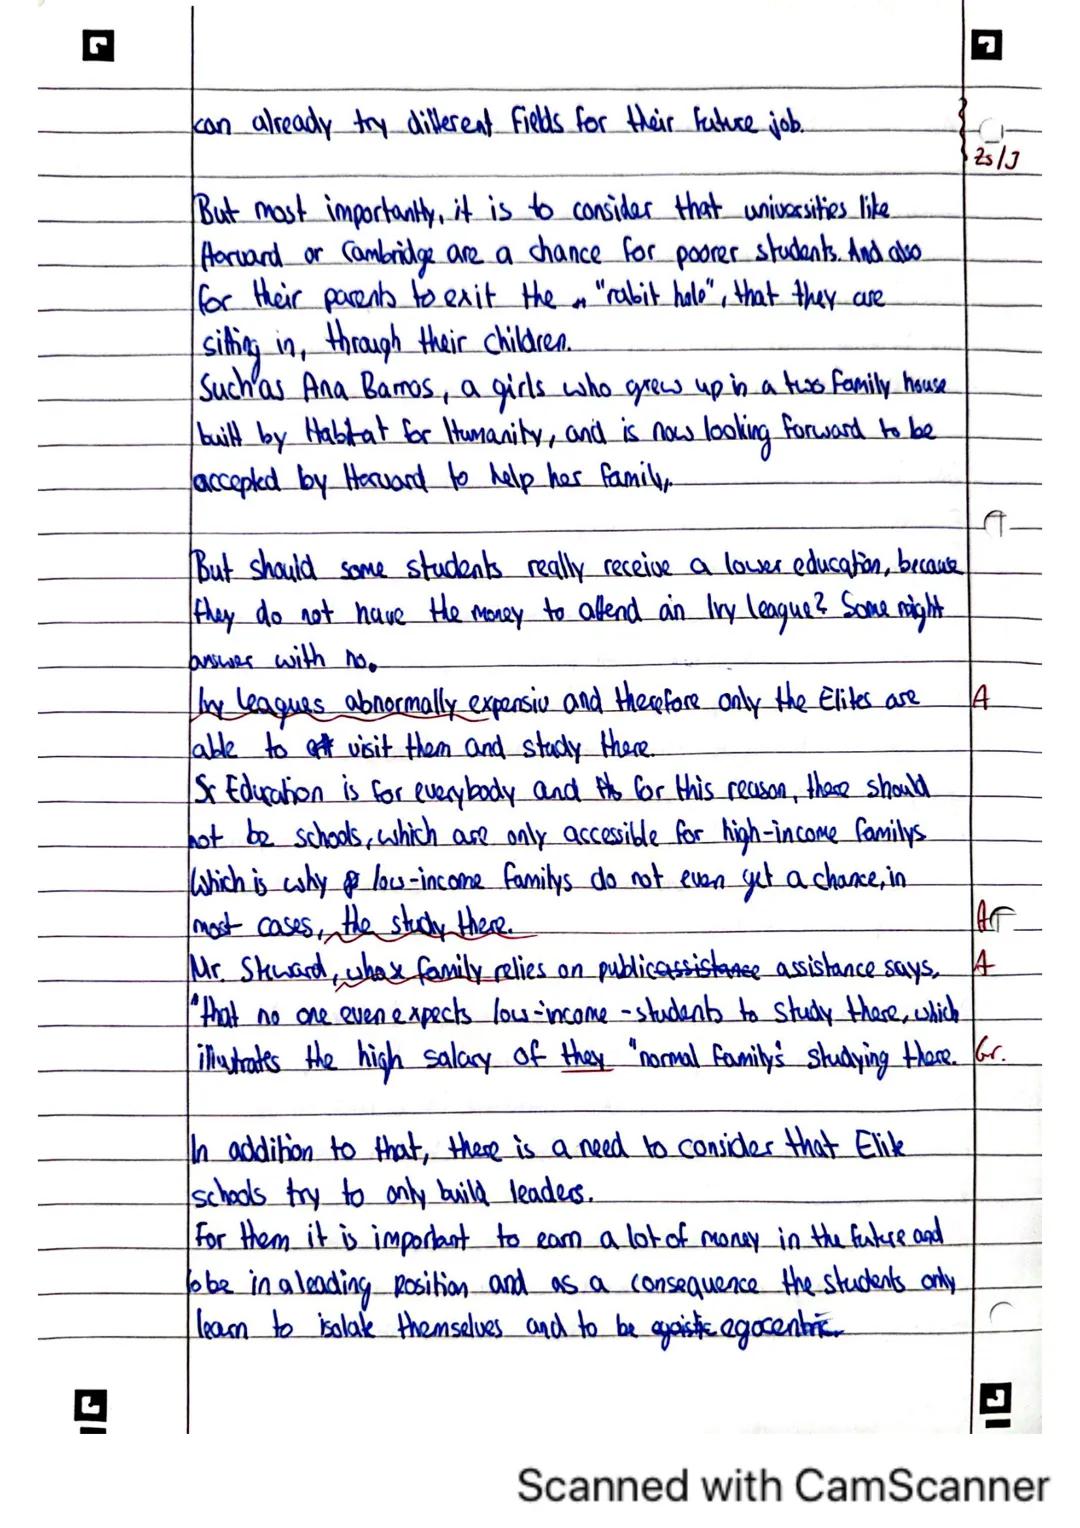 can already try different fields for their future job.
Zs/J
But most importantly, it is to consider that universities like
Harvard or Cambridge are a chance for poorer students. And also
for their parents to exit the "rabit hole", that they are
sitting in, through their children.
Such as Ana Barros, a girls who grew up in a two family house
built by Habitat for Humanity, and is now looking forward to be
accepted by Harvard to help her family.
But should some students really receive a lower education, because
they do not have the money to attend an Ivy league? Some might
answer with no.
Ivy leagues abnormally expensiv and therefore only the Elites are A
able to visit them and study there.
Education is for everybody and for this reason, there should
not be schools, which are only accessible for high-income familys
Which is why low-income familys do not even get a chance, in
most cases, the study there. A
Mr. Steward, whos family relies on public assistance says, A
"that no one even expects low-income-students to study there, which
illustrates the high salary of they "normal family's studying there. Gr.
In addition to that, there is a need to consider that Elite
schools try to only build leaders.
For them it is important to earn a lot of money in the future and
to be in a leading position and as a consequence the students only
learn to isolate themselves and to be egocentric.
Scanned with CamScanner